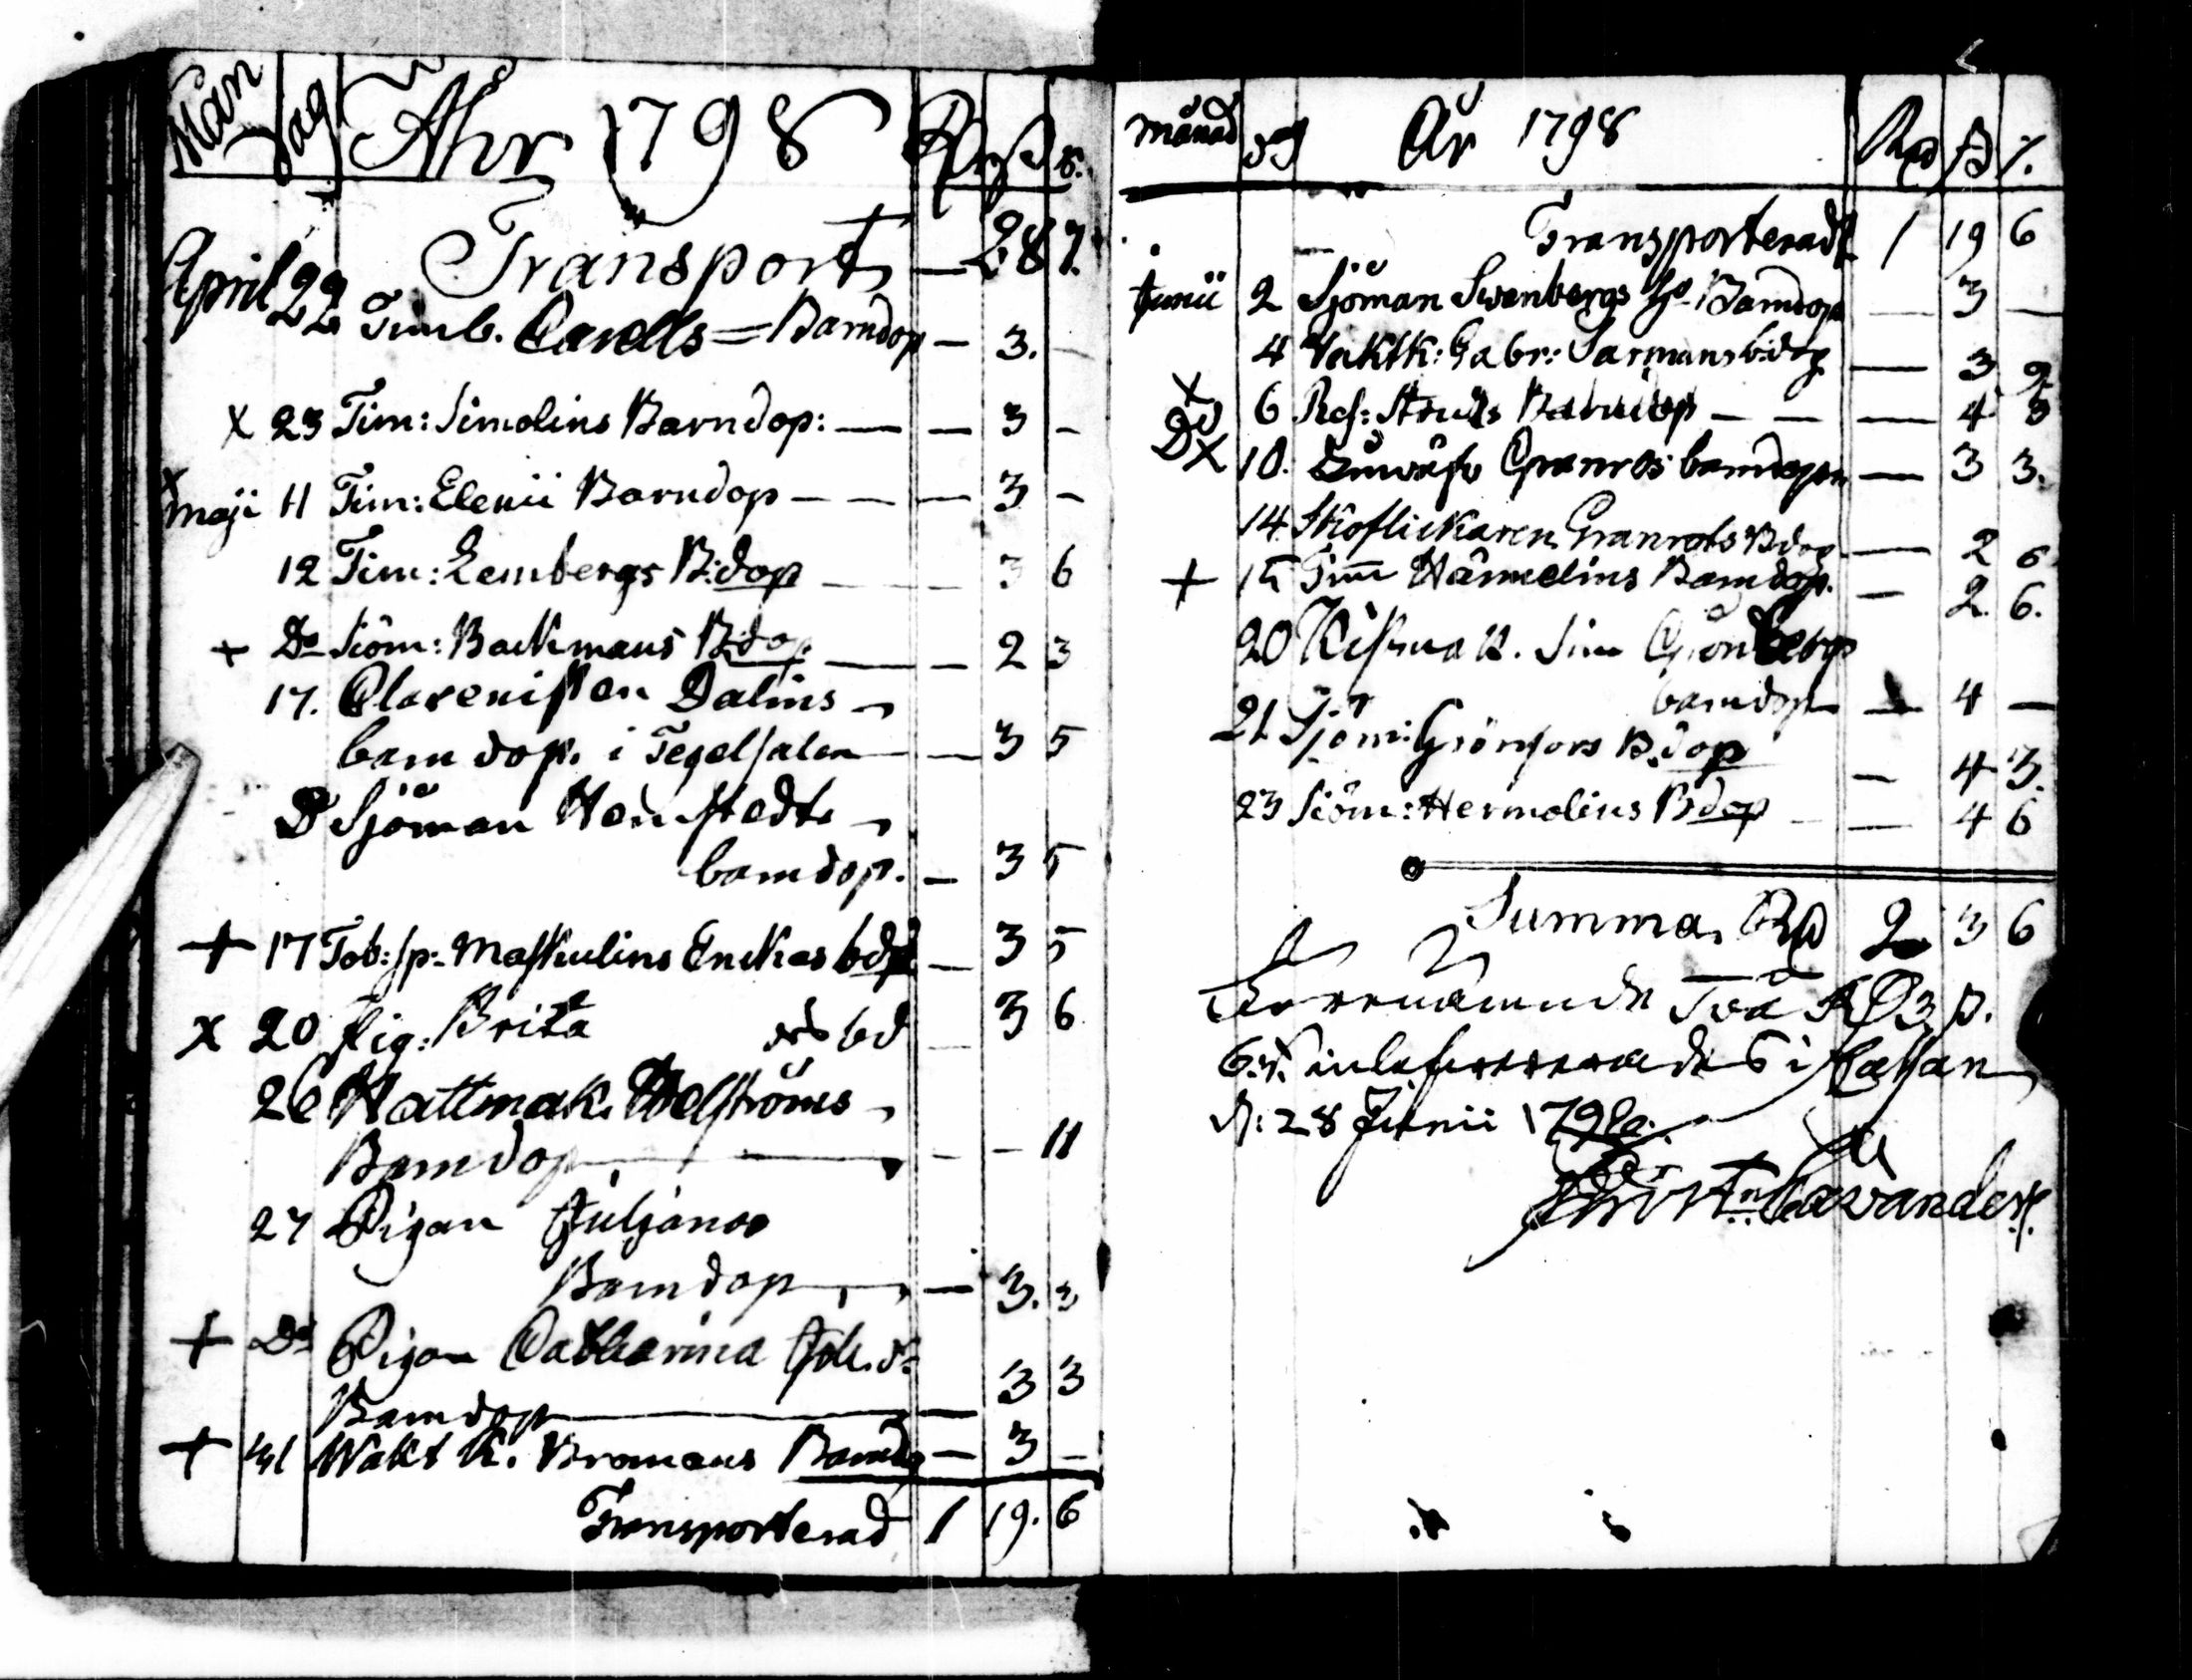 Mån Dag Åhr 1798 Rd ß r.
Transport — 28 7.
April 22 Timb. Carells = Barndop — 3. —
x 23 Tim: Simolins Barndop: — — 3 -
x Maji 11 Tim: Elenii Barndop — — 3 -
12 Tim: Lembergs B:dop — — 3 6
+ Do Siöm: Backmans B:dop — — 2 3
17. Clarenisten Dalins
barndop. i Tegelsalen — 3 5
D Sjöman Henstedts
barndop. — 3 5
+ 17 Tob: sp: Maskulins Enckas bdp — 3 5
x 20 Pig: Brita bd — 3 6
26 Hattmak. Welströms
Barndop — — 11
27 Pigan Juljanas
Barndop — 3. 3
+ Do Pigan Catharina Joh. dr
Barndop — 3 3
+ 31 Wakt K. Bromans Barndop — 3 —
Transporterad 1 19. 6
Månad dg År 1798 Rd ß r.
Transporteradt 1 19 6
Junii 2 Sjöman Swenbergs Barndop — 3 —
4 Vaktk: Gabr: Sarmans b:dop — 3 2
x Do 6 Ref: Barndop — — — 4 3
Dx 10. Granros barndopn — 3 3.
14 Skoflickaren Granrots Bdop — 2 6
+ 15 Tim Härmelins Barndop. — 2. 6.
20 K. Sim Grönberg
barndop — 4 —
21 Sjöm: Grönfors B.dop — 4 3.
23 Siöm: Hermolins Bdop — — 4 6
Summa, Rd 2 3 6
Två Rd 3 ß.
6 r. i Cassan
d: 28 Junii 1798.
Cavander.